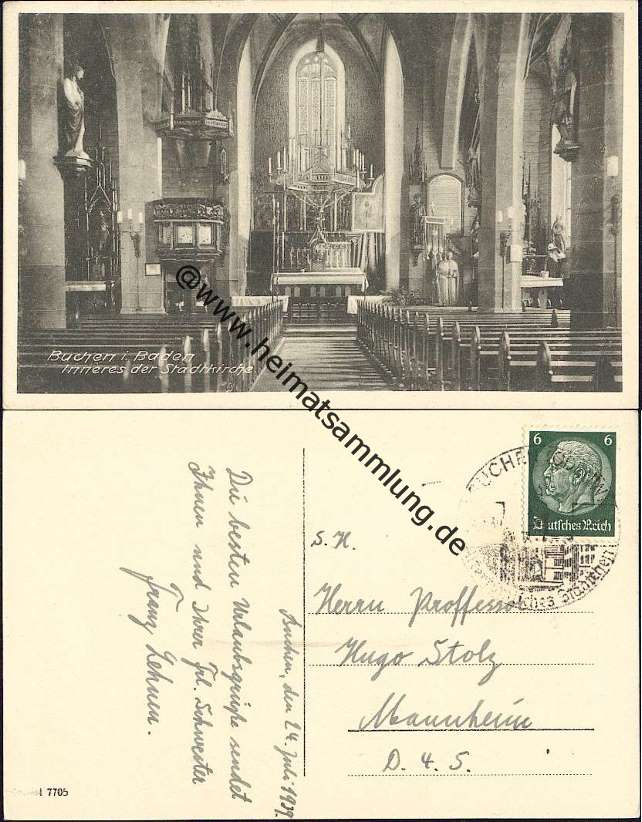 Buchen i. Baden
Inneres der Stadtkirche
@www.heimatsammlung.de
6 6
Deutsches Reich
BUCHEN
Städtchen
S. H.
Herrn Proffessor
Hugo Stolz
Mannheim
D. 4. S.
Buchen, den 24. Juli 1939.
Die besten Urlaubsgrüße sendet
Ihnen und Ihrer Frl. Schwester
Franz Lehnen.
7705